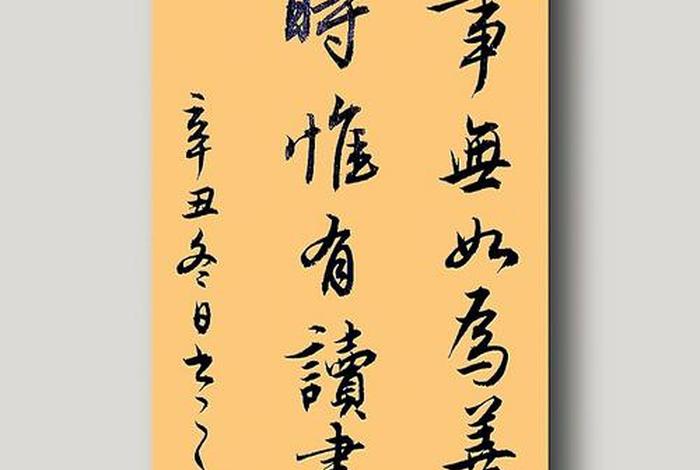 事無如為善
時惟有讀書
辛丑冬日书